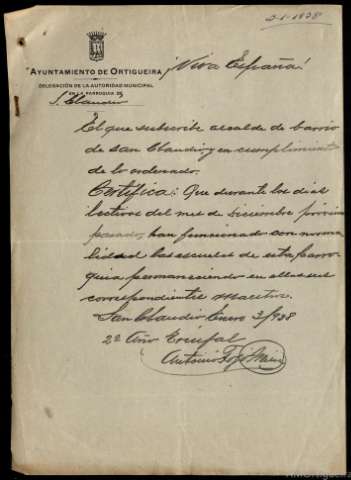 3-1-1938
¡Viva España!
AYUNTAMIENTO DE ORTIGUEIRA
DELEGACIÓN DE LA AUTORIDAD MUNICIPAL
EN LA PARROQUIA DE
S. Claudio
El que subscribe alcalde de barrio
de San Claudio y en cumplimiento
de lo ordenado.
Certifica: Que durante los dias
lectivos del mes de Diciembre proximo
pasado, han funcionado con norma
lidad las escuelas de esta parro
quia permaneciendo en ellas sus
correspondientes Maestros.
San Claudio Enero 3/938
2º Año Triunfal
Antonio